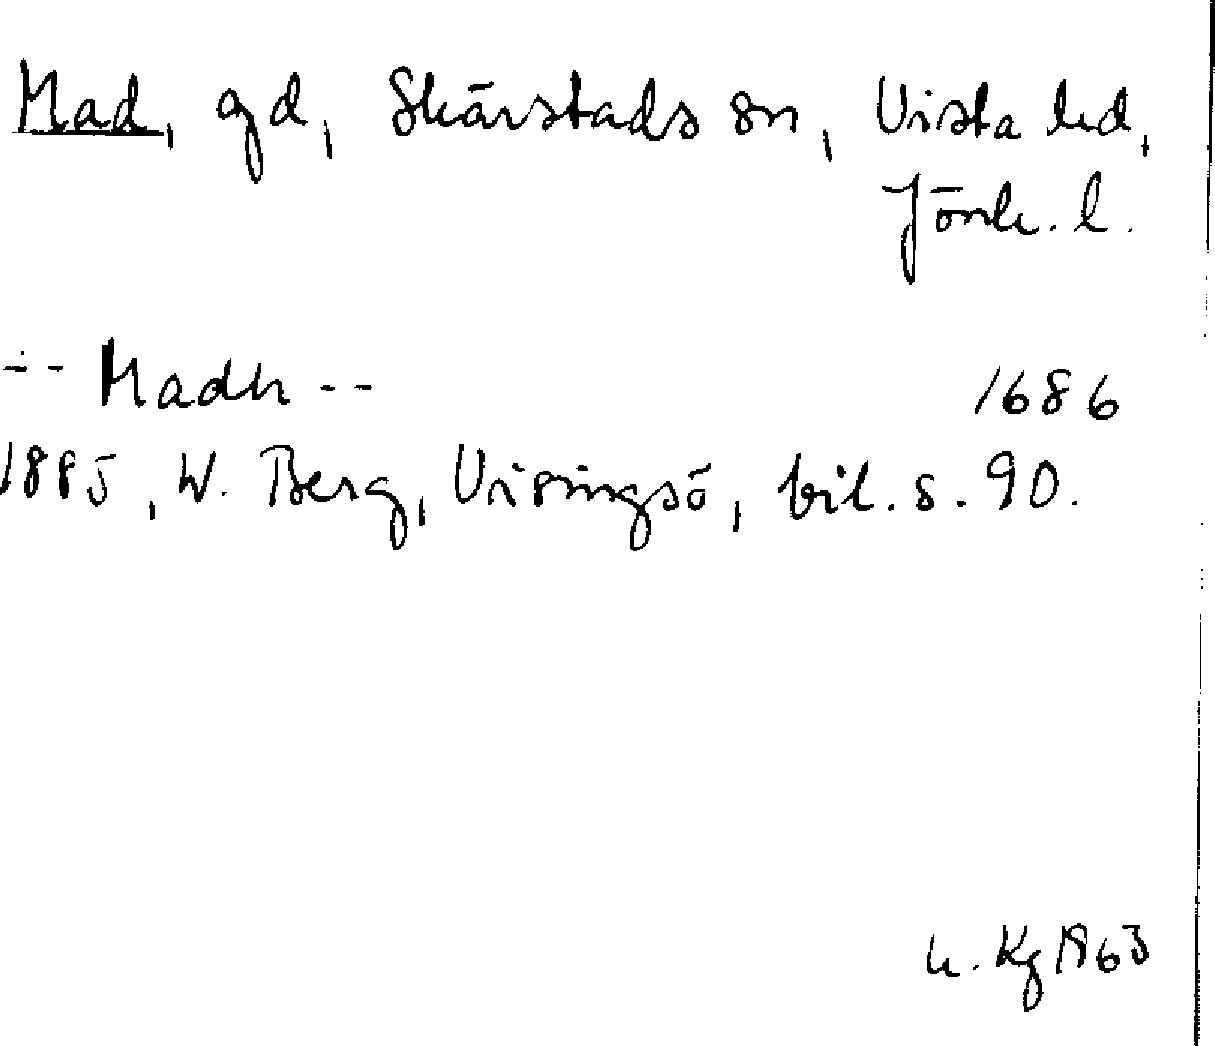 Mad, gd, Skärstads sn, Vista hd,
Jönk. l.
-- Madh -- 1686
1885, W. Berg, Visingsö, bil. s. 90.
h. Kg 1963